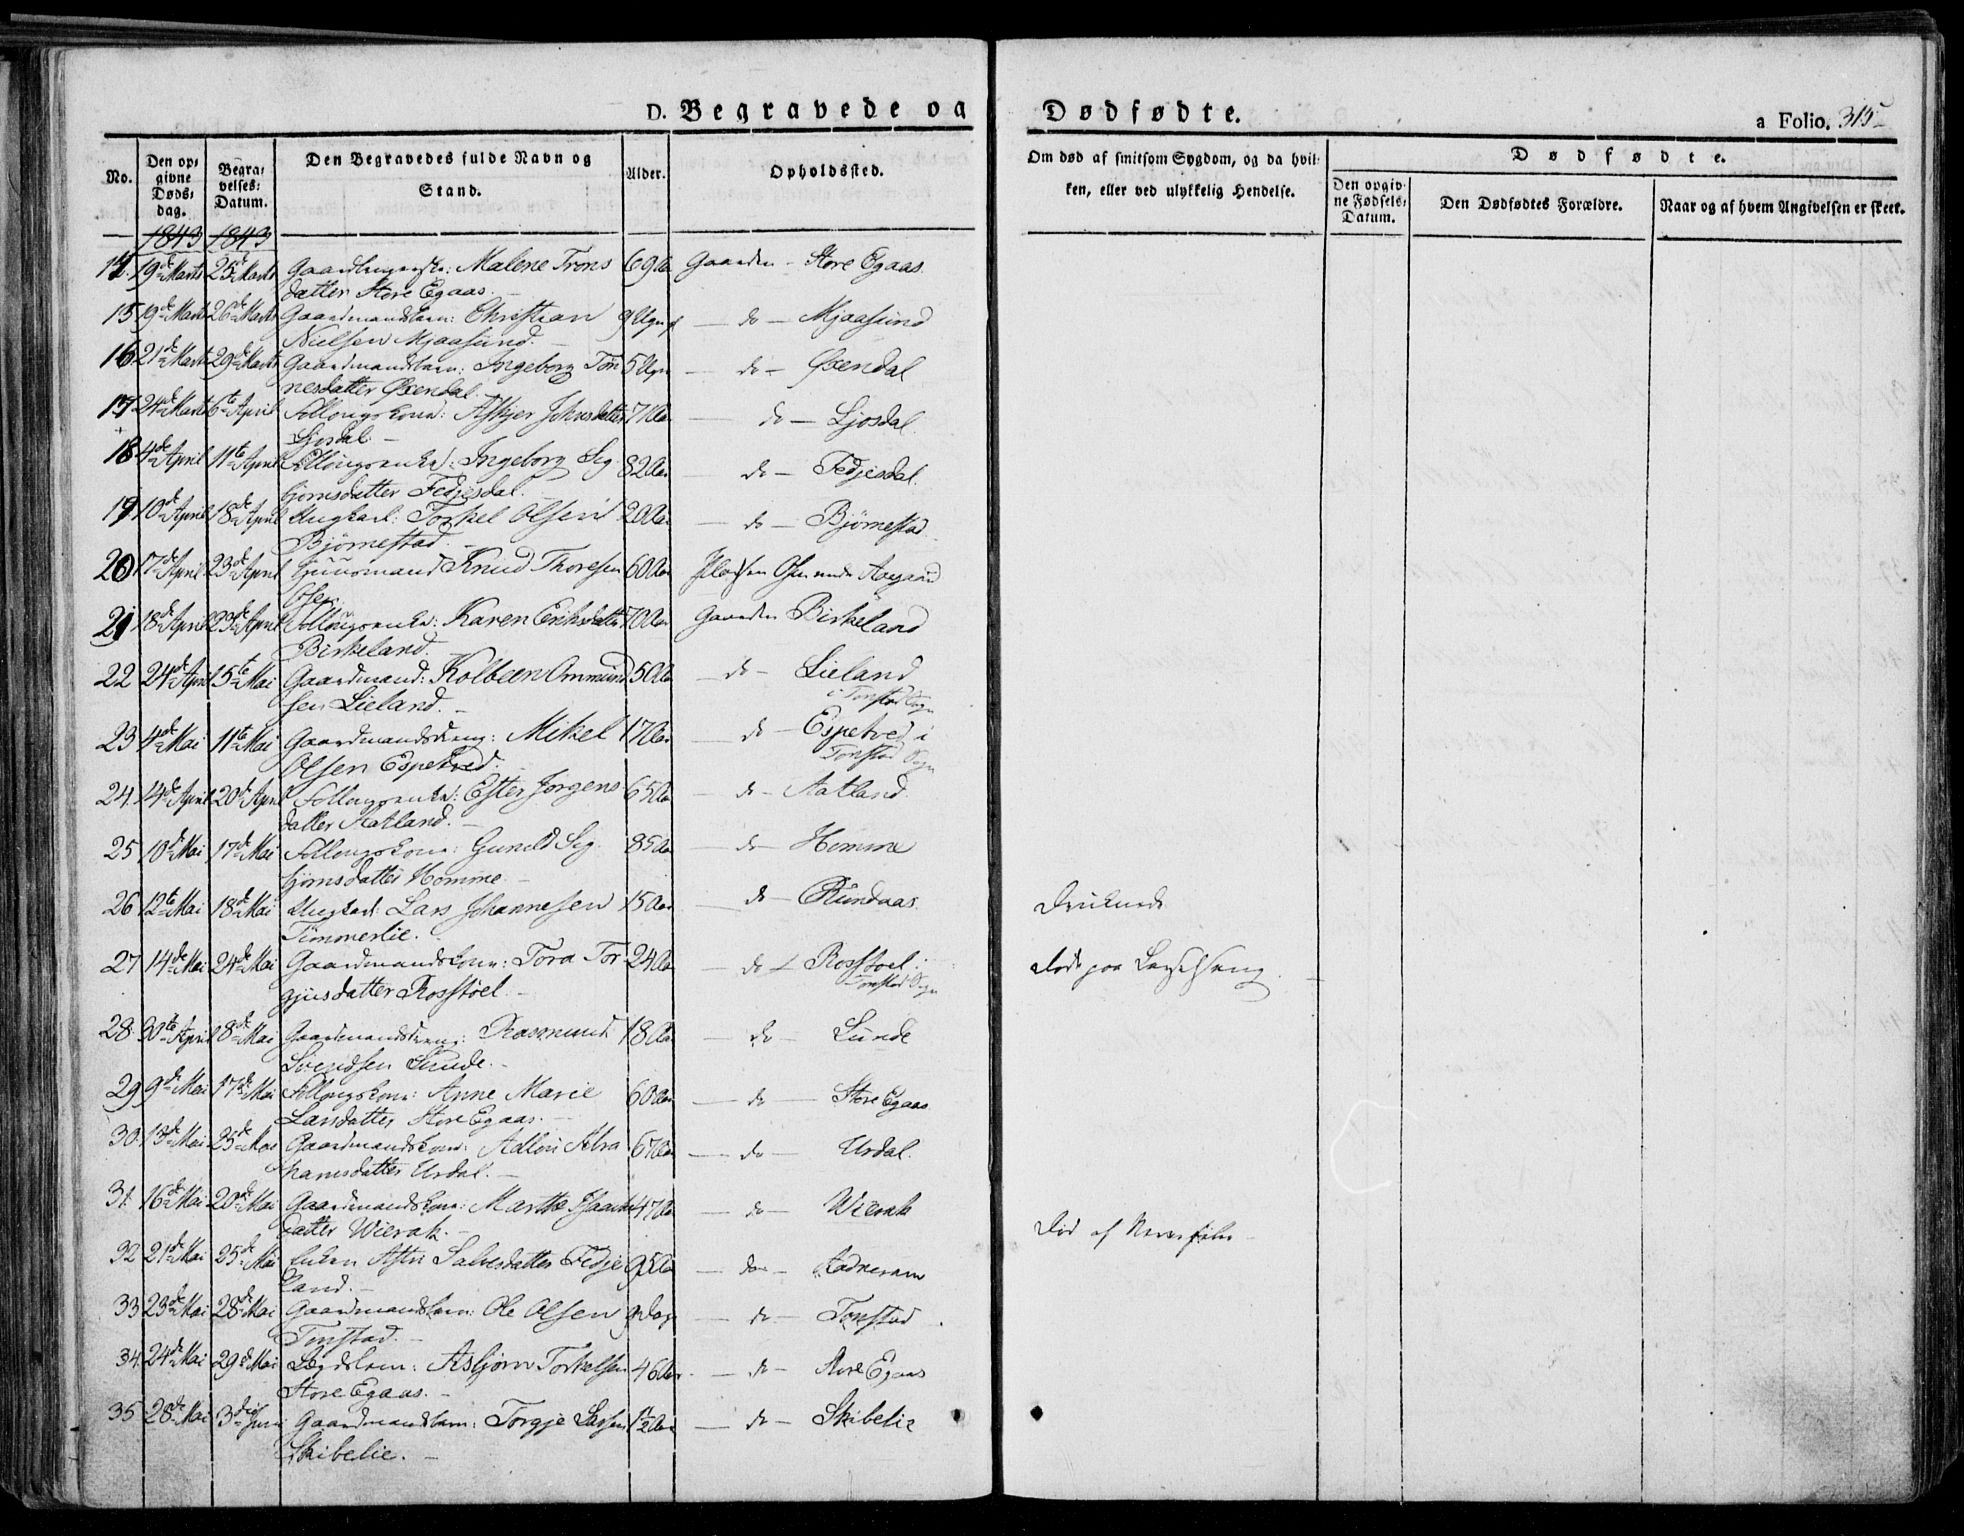 D. Begravede og Dødfødte.
a Folio. 315
No.
Den op-
givne
Døds-
dag.
Begra-
velses-
Datum.
Den Begravedes fulde Navn og
Stand.
Alder.
Opholdssted.
Om død af smitsom Sygdom, og da hvil-
ken, eller ved ulykkelig Hendelse.
Dødfødte.
Den opgiv-
ne Fødsels-
Datum.
Den Dødfødtes Forældre.
Naar og af hvem Angivelsen er skeet.
1843 1843
14. 19de Marts 25de Marts Malene Trons 69 Aar Gaarden - Store Egaas
datter Store Egaas. -
15 19de Marts 26de Marts Gaardmandsbarn: Christian 9 Uger - do - Mjaasund
Nielsen Mjaasund. -
16 21de Marts 29de Marts Gaardmandsbarn: Ingeborg Tøn 5 Uger - do - Øxendal
nesdatter Øxendal.
17 24de Marts 6te April Follougskone: Johnsdatter 71 Aar - do - Ljosdal
Ljosdal. -
18 4de April 11te April Follougsenke: Ingeborg Sig 82 Aar - do - Fedjesdal
bjørnsdatter Fedjesdal. -
19 10de April 18de April Ungkarl: Torkel Olsen 20 Aar - do - Bjørnestad
Bjørnestad. -
20 17de April 23de April Huusmand Knud Thoresen 60 Aar Pladsen Osen under Aagaard
Osen.
21 18de April 23de April Follougsenke: Karen Eriksdatter 70 Aar Gaarden Birkeland
Birkeland.
22 24de April 15te Mai Gaardmand: Kolbeen Ommund 50 Aar - do - Lieland
sen Lieland. - i Tonstad Sogn
23 4de Mai 11te Mai Gaardmandsdreng: Mikel 17 Aar - do - Espetved i
Olsen Espetved. Tonstad Sogn
24. 14de April 20de April Follougsenke: Ester Jørgens 65 Aar - do - Aatland
datter Aatland. -
25 10de Mai 17de Mai Follougskone: Gunild Sig 85 Aar - do - Homme
bjørnsdatter Homme. -
26 12te Mai 18de Mai Ungkarl: Lars Johannesen 15 Aar - do - Rundaas Druknede
Timmerlie. -
27 14de Mai 24de Mai Gaardmandskone: Tora Tor 24 Aar - do - Rosstøel i Døde paa Barselseng.
gjusdatter Rosstøel. - Tonstad Sogn
28. 30te April 8de Mai Gaardmandsdreng: Rasmund 18 Aar - do - Lunde
Svendsen Lunde. -
29 9de Mai 17de Mai Follougskone: Anne Marie 60 Aar - do - Store Egaas
Larsdatter Store Egaas. -
30. 13de Mai 25de Mai Gaardmandskone: Abra 67 Aar - do - Urdal.
hamsdatter Urdal. -
31 16de Mai 20de Mai Gaardmandskone: Marthe Isaachs 47 Aar - do - Wierak
datter Wierak. - Død af Nervefeber -
32 21de Mai 25de Mai Enken Salvesdatter Fedje 95 Aar - do - Josdal
land. -
33 23de Mai 28de Mai Gaardmandsbarn: Ole Olsen 9 Dage - do - Tonstad
Tonstad. -
34. 24de Mai 29de Mai Lægdslem: Asbjørn Torkelsen 46 Aar - do - Store Egaas
Store Egaas. -
35 28de Mai 3die Juni Gaardmandsbarn: Torgje Larsen 1½ Aar - do - Skibelie
Skibelie. -